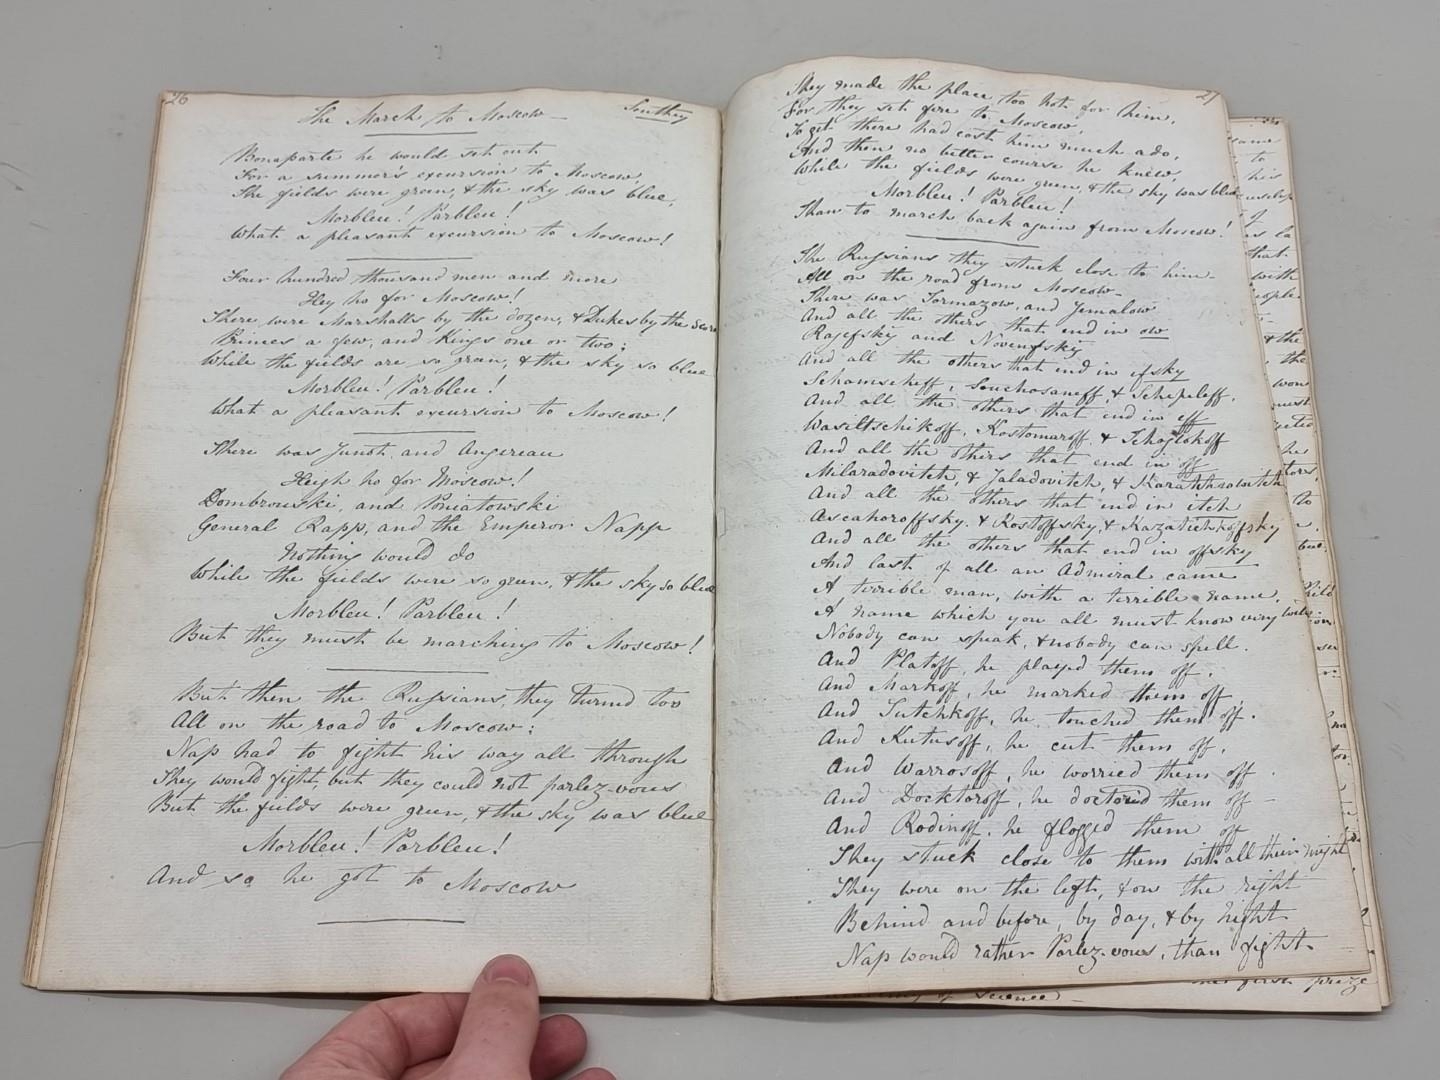 26
The March to Moscow — Southey
Bonaparte he would set out
For a summer's excursion to Moscow,
The fields were green, & the sky was blue,
Morbleu! Parbleu!
What a pleasant excursion to Moscow!
Four hundred thousand men and more
Hey ho for Moscow!
There were Marshalls by the dozen, & Dukes by the score
Princes a few, and Kings one or two;
While the fields are so green, & the sky so blue
Morbleu! Parbleu!
What a pleasant excursion to Moscow!
There was Junot, and Augereau
Heigh ho for Moscow!
Dombrowski, and Poniatowski
General Rapp, and the Emperor Napp
Nothing would do
While the fields were so green, & the sky so blue
Morbleu! Parbleu!
But they must be marching to Moscow!
But then the Russians, they turned too
All on the road to Moscow;
Nap had to fight his way all through
They would fight, but they could not parlez-vous
But the fields were green, & the sky was blue
Morbleu! Parbleu!
And so he got to Moscow
27
They made the place too hot for him,
For they set fire to Moscow,
To get there had cost him much ado,
And then no better course he knew,
While the fields were green, & the sky was blue
Morbleu! Parbleu!
Than to march back again from Moscow!
The Russians they stuck close to him
All on the road from Moscow—
There was Tormazow, and Jemalow
And all the others that end in ow
Rajefsky and Novenfsky
And all the others that end in efsky
Schamscheff, Souchosaneff, & Schepeleff,
And all the others that end in eff
Wasiltschikoff, Kostomaroff, & Tchoglokoff
And all the others that end in off
Milaradovitch, & Jaladovitch, & Karatchkowitch
And all the others that end in itch
Oscaharoffsky, & Rostoffsky, & Kazatichkoffsky
And all the others that end in offsky
And last of all an Admiral came
A terrible man, with a terrible name,
A name which you all must know very well
Nobody can speak, & nobody can spell.
And Platoff, he played them off,
And Markoff, he marked them off
And Tutchkoff, he touched them off.
And Kutusoff, he cut them off,
And Warrosoff, he worried them off
And Docktoroff, he doctored them off —
And Rodinoff, he flogged them off
They stuck close to them with all their might
They were on the left, & on the right
Behind and before, by day, & by night
Nap would rather Parlez-vous, than fight
of science) —
first prize